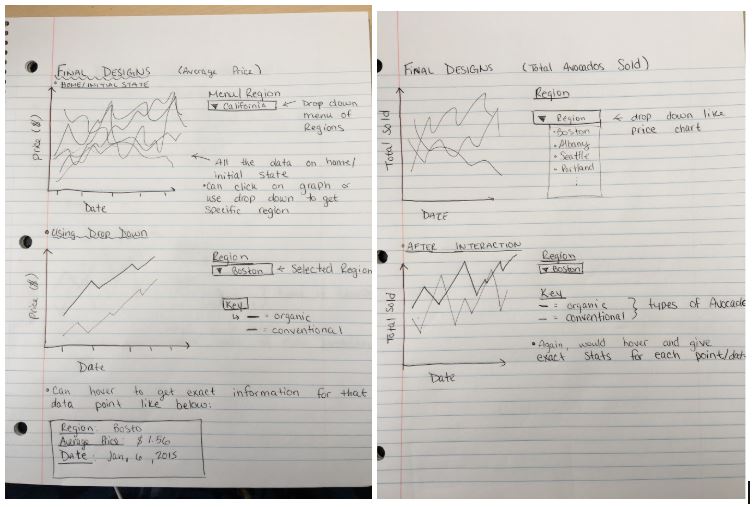 FINAL DESIGNS (Average Price)
• HOME/INITIAL STATE
Price ($)
Date
Menu/Region
▼ California
← Drop down
menu of
Regions
← All the data on home/
initial state
• Can click on graph or
use drop down to get
specific region
• Using Drop Down
Price ($)
Date
Region
▼ Boston ← Selected Region
Key
↳ — = organic
— = conventional
• Can hover to get exact information for that
data point like below:
Region: Bosto
Average Price: $1.56
Date: Jan, 6, 2015
FINAL DESIGNS (Total Avocados Sold)
Total Sold
DATE
Region
▼ Region
• Boston
• Albany
• Seattle
• Portland
⋮
← drop down like
price chart
• AFTER INTERACTION
Total Sold
Date
Region
▼ Boston
Key
— = organic
— = conventional
} types of Avocado
• Again, would hover and give
exact stats for each point/dat